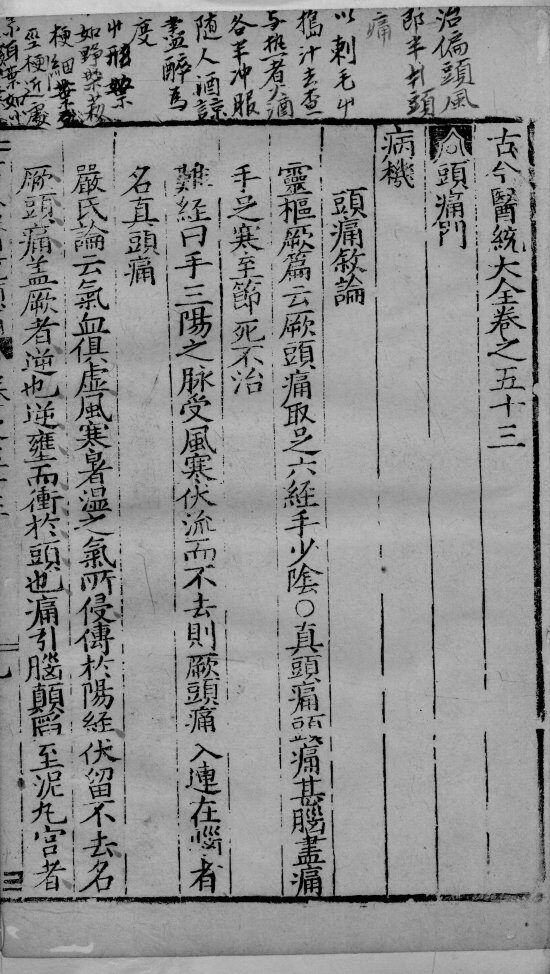 治偏頭風
即半引頭
痛
以刺毛
搗汁去查
与熱者酒
各半冲服
随人酒諒
盡醉為
度
形槩
如野槩菽
梗細葉
至梗近處
古今醫統大全卷之五十三
頭痛門
病機
頭痛敘論
靈樞厥篇云厥頭痛取足六経手少陰○真頭痛頭痛甚腦盡痛
手足寒至節死不治
難経曰手三陽之脉受風寒伏流而不去則厥頭痛入連在惱者
名真頭痛
嚴氏論云氣血俱虚風寒暑湿之氣所侵傳於陽経伏留不去名
厥頭痛盖厥者逆也逆壅而衝於頭也痛引腦顛陷至泥丸宫者